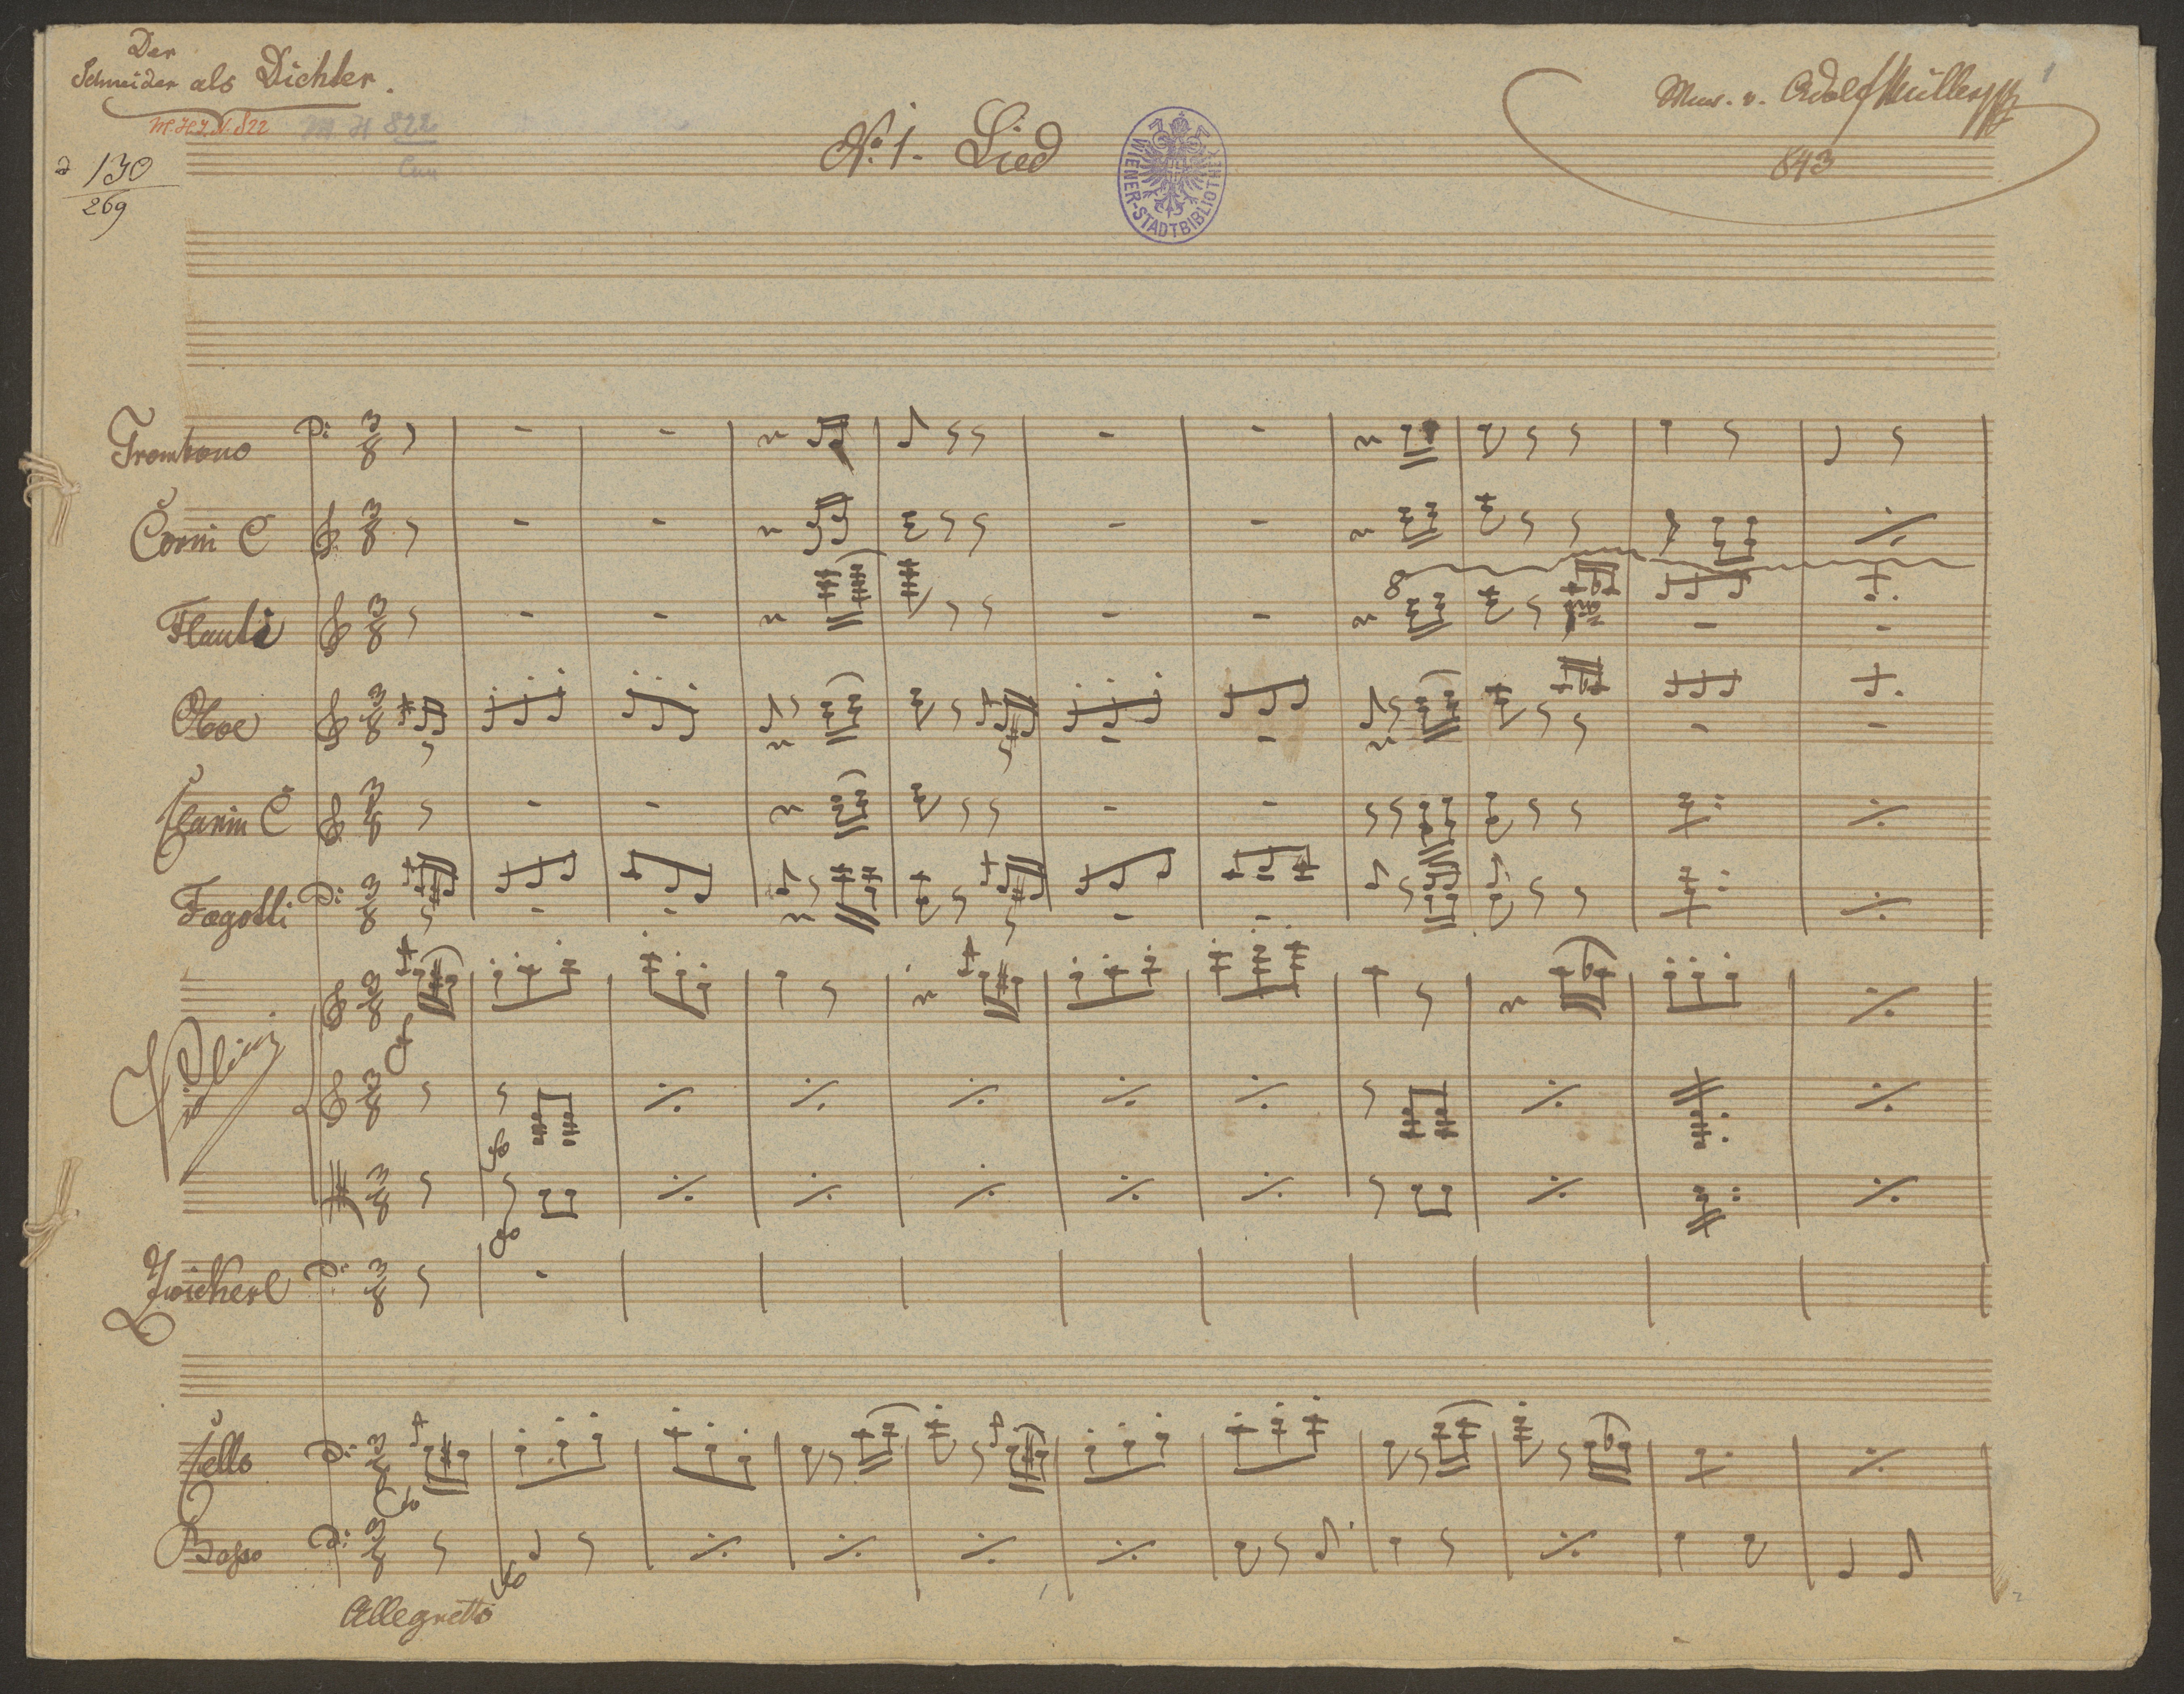 Der
Schneider als Dichter.
M.H.I.N. 822
M H 822
130
269
No. 1. Lied
WIENER-STADTBIBLIOTHEK
Mus. v. Adolf Müller
843
1
Trombono
Corni C
Flauti
8
Oboe
Clarin C
Fagotti
Violini
Zwickerl
Cello
Basso
Allegretto